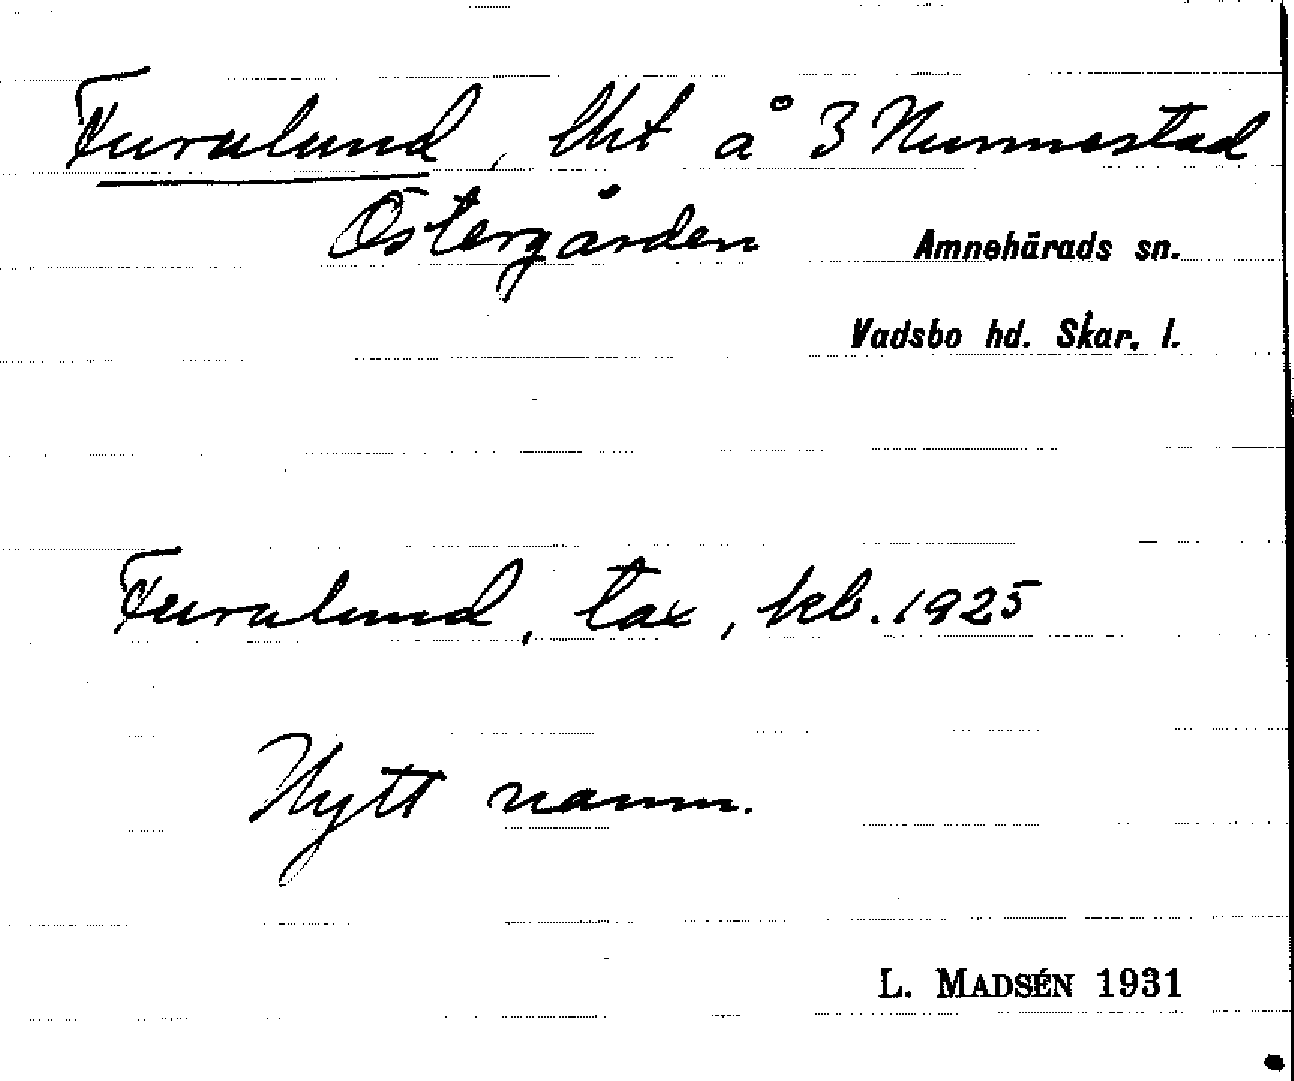 Furulund, lht å 3 Nunnestad
Östergården
Amnehärads sn.
Vadsbo hd. Skar. l.
Furulund, tax, kb. 1925
Nytt namn.
L. MADSÉN 1931